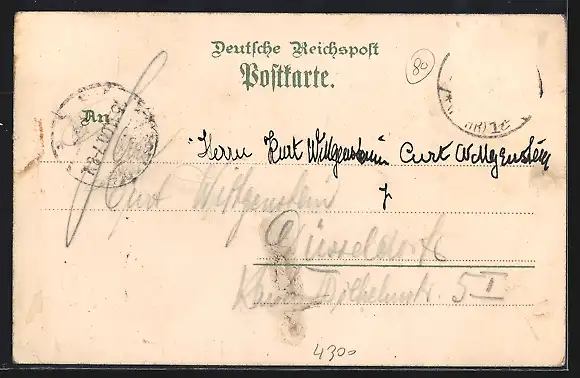 Deutsche Reichspost
80
Postkarte.
An
Herrn Kurt Wittgenstein Curt Wittgenstein
Curt Wittgenstein
Düsseldorf
Wilhelmstr. 5 I
4300